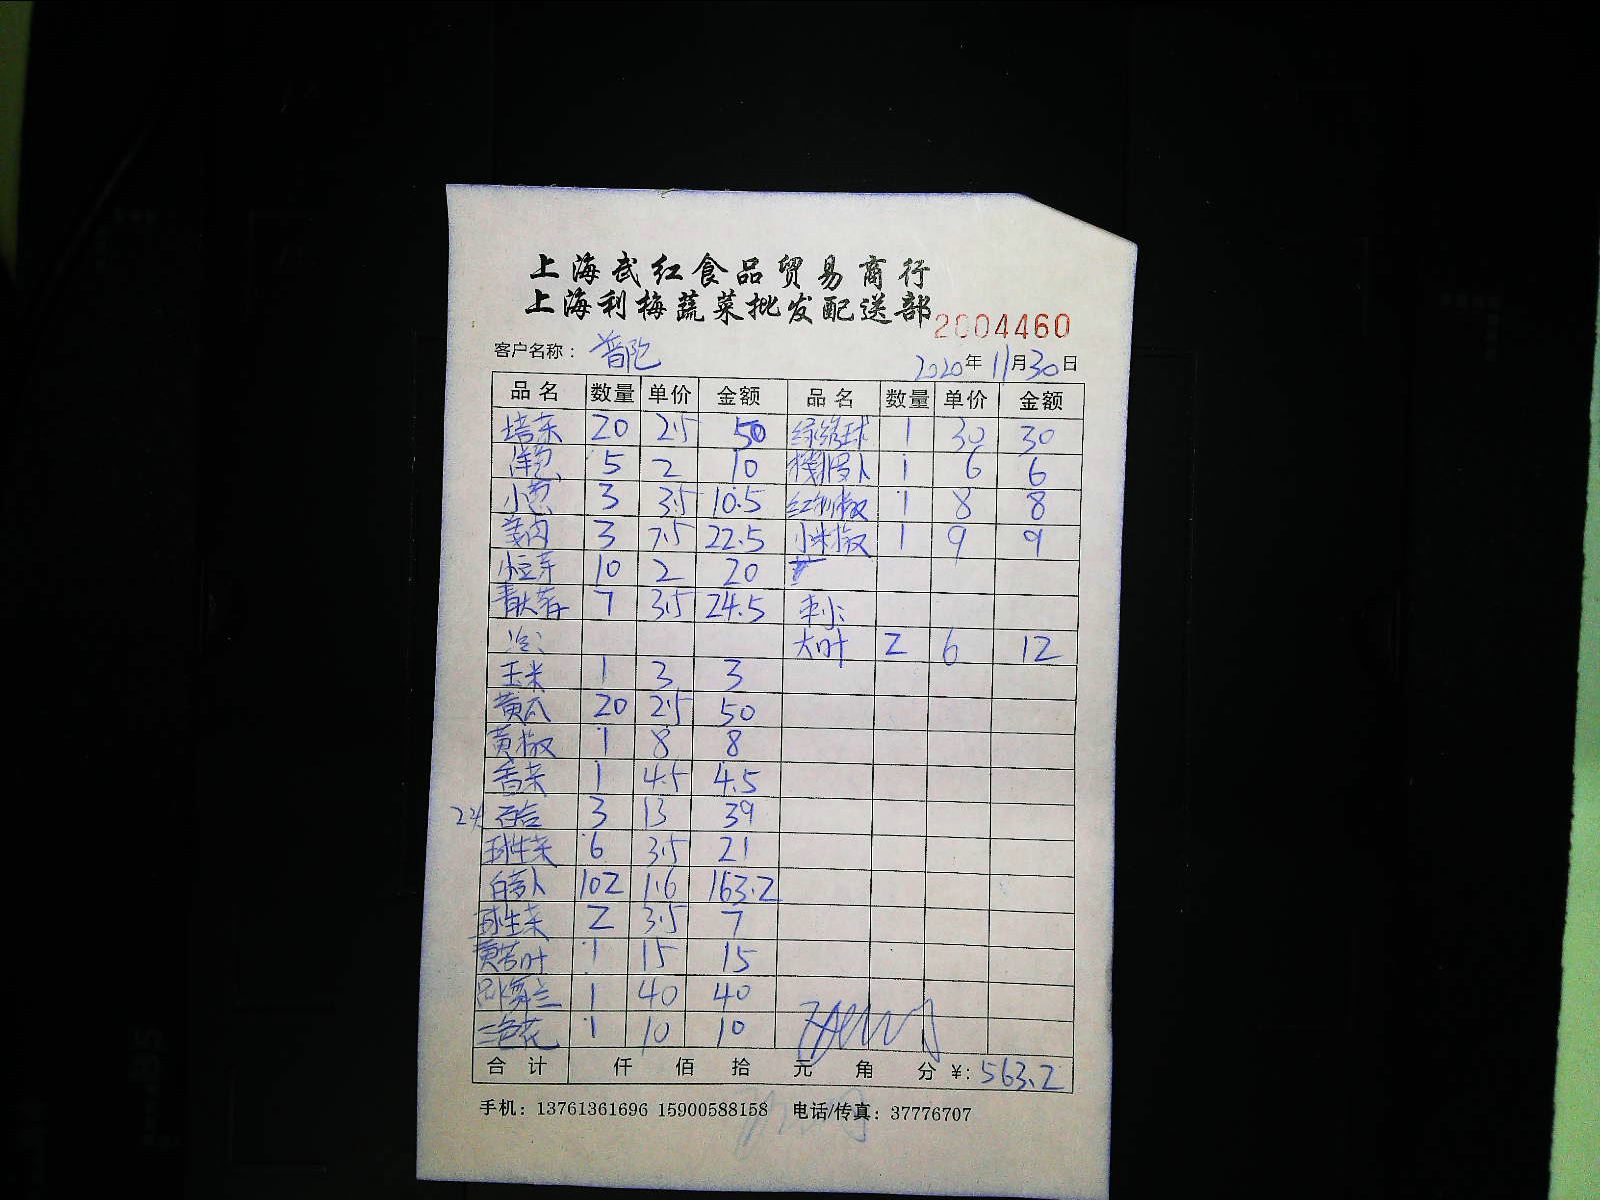 上海武红食品贸易商行
上海利梅蔬菜批发配送部
2004460
客户名称：普陀 2020年11月30日
品名 数量 单价 金额 品名 数量 单价 金额
20 2.5 50 1 30 30
洋葱 5 2 10 1 6 6
小葱 3 3.5 10.5 红尖椒 1 8 8
姜肉 3 7.5 22.5 小米椒 1 9 9
小豆芽 10 2 20
青大蒜 7 3.5 24.5
大叶 2 6 12
玉米 1 3 3
黄瓜 20 2.5 50
黄椒 1 8 8
香菜 1 4.5 4.5
百合 3 13 39
球生菜 6 3.5 21
白萝卜 102 1.6 163.2
球生菜 2 3.5 7
1 15 15
跳舞兰 1 40 40
三色花 1 10 10
合计 仟 佰 拾 元 角 分 ¥: 563.2
手机：13761361696 15900588158 电话/传真：37776707